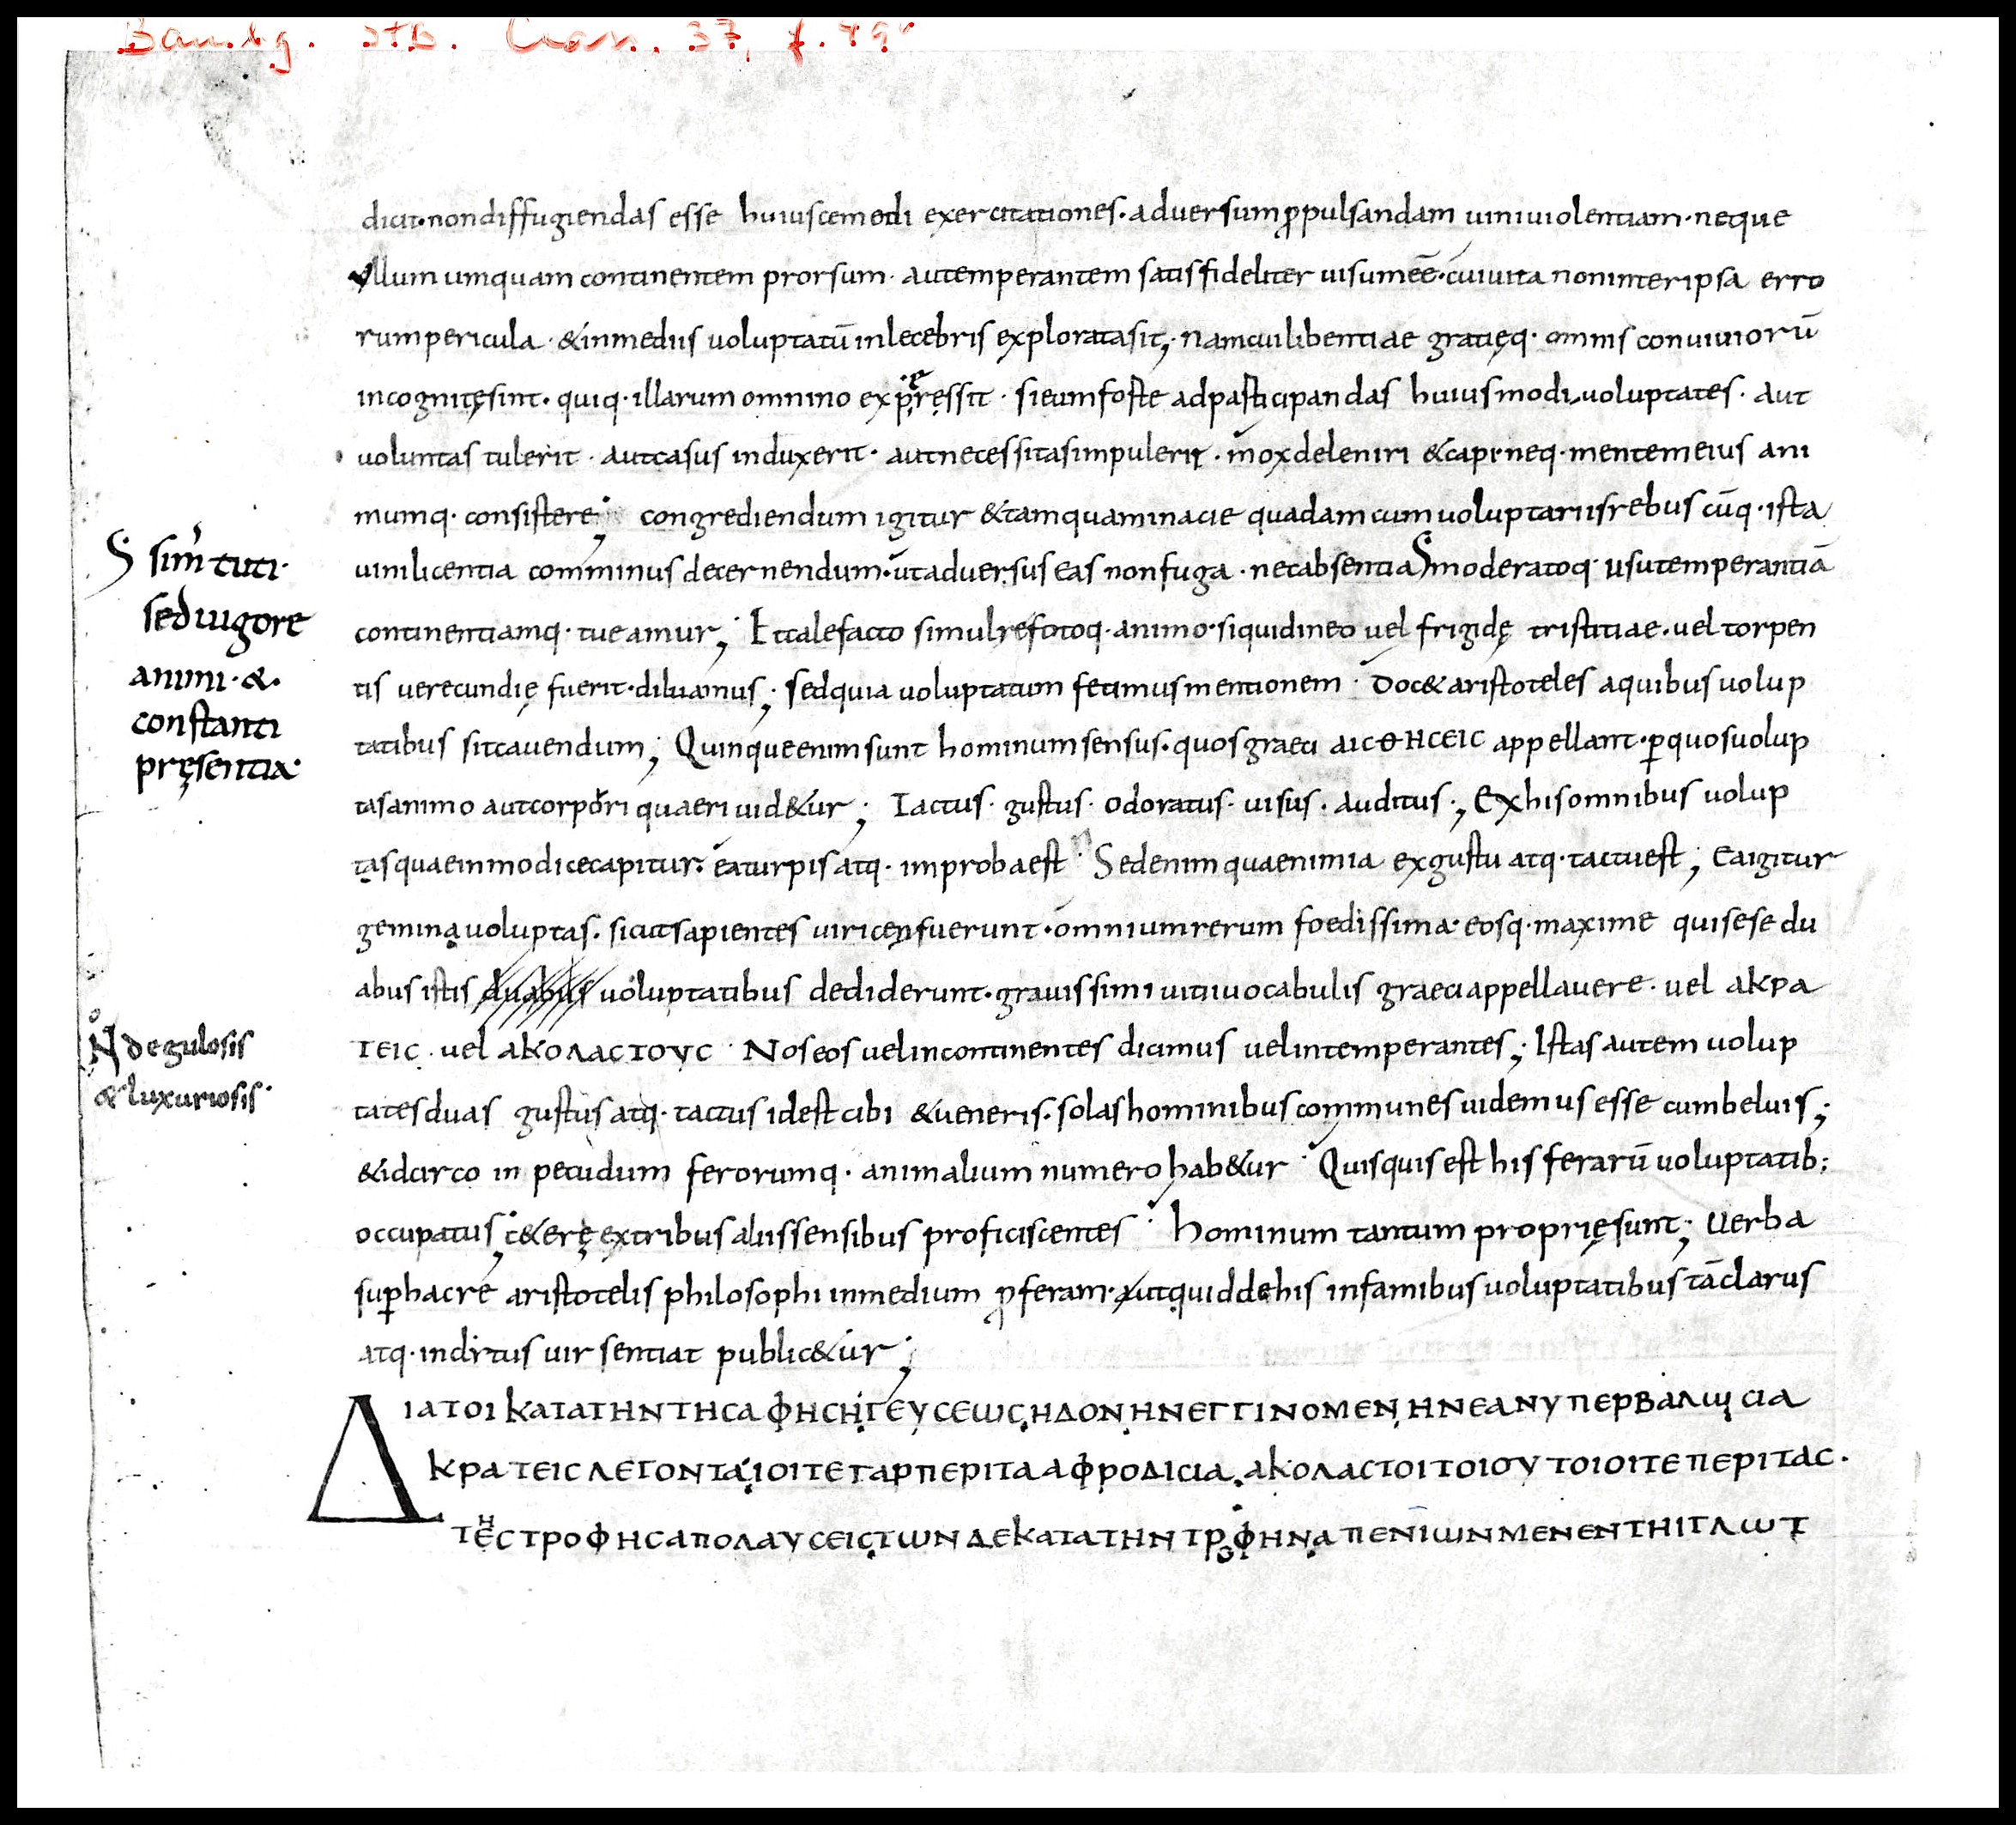 Bambg. Stb. Class. 37, f. 49r
dicit· non diffugiendas esse huiuscemodi exercitationes· adversum ꝓpulsandam uini uiolentiam· neque
ullum umquam continentem prorsum· aut temperantem satis fideliter uisum eē· cui uita non inter ipsa erro
rum pericula· & in mediis uoluptatū inlecebris explorata sit; nam cui libentiae gratięq· omnis conuiuiorū
incognitę sint· quiq· illarum omnino expręssit· si eum forte ad participandas huiusmodi uoluptates· aut
uoluntas tulerit· aut casus induxerit· aut necessitas impulerit· mox deleniri & capi· neq· mentem eius ani
mumq· consistere; congrediendum igitur & tamquam in acie quadam cum uoluptariis rebus cūq· ista
uini licentia comminus decernendum· ut adversus eas non fuga· nec absentia S moderatoq· usu temperantiā
S sim̄ tuti·
sed uigore
animi· &·
constanti
pręsentia·
continentiamq· tueamur; Et calefacto simul refotoq· animo· si quid in eo uel frigidę tristitiae· uel torpen
tis uerecundię fuerit· diluamus; sed quia uoluptatum fecimus mentionem· Doc& aristoteles a quibus uolup
tatibus sit cauendum; Quinque enim sunt hominum sensus· quos graeci ΑΙϹΘΗϹΕΙϹ appellant· ꝑ quos uolup
tas animo aut corpori quaeri uid&ur; Tactus· gustus· odoratus· uisus· auditus; Ex his omnibus uolup
tas quae inmodice capitur· ea turpis atq· improba est· Sed enim quae nimia ex gustu atq· tactu est; Ea igitur
gemina uoluptas· sicut sapientes uiri cenfuerunt· omnium rerum foedissima· eosq· maxime qui sese du
abus istis duabus uoluptatibus dediderunt· grauissimi uitii uocabulis graeci appellauere· uel ΑΚΡΑ
ΤΕΙϹ· uel ΑΚΟΛΑϹΤΟΥϹ· Nos eos uel incontinentes dicimus uel intemperantes; Istas autem uolup
N̊ de gulosis
& luxuriosis·
tates duas gustus atq· tactus id est cibi & ueneris· solas hominibus communes uidemus esse cum beluis;
& idcirco in pecudum ferorumq· animalium numero hab&ur· Quisquis est his ferarū uoluptatib;
occupatus; c&erę ex tribus aliis sensibus proficiscentes· hominum tantum proprię sunt; Uerba
suꝑ hac re aristotelis philosophi in medium ꝓferam· ut quid de his infamibus uoluptatibus tā clarus
atq· inclitus uir sentiat public&ur;
ΔΙΑ ΤΟΙ ΚΑΤΑ ΤΗΝ ΤΗϹ ΑΦΗϹ Η ΓΕΥϹΕΩϹ ΗΔΟΝΗΝ ΕΓΓΙΝΟΜΕΝΗΝ ΕΑΝ ΥΠΕΡΒΑΛΩϹΙ Α
ΚΡΑΤΕΙϹ ΛΕΓΟΝΤΑΙ ΟΙ ΤΕ ΓΑΡ ΠΕΡΙ ΤΑ ΑΦΡΟΔΙϹΙΑ ΑΚΟΛΑϹΤΟΙ ΤΟΙΟΥΤΟΙ ΟΙ ΤΕ ΠΕΡΙ ΤΑϹ·
ΤΗϹ ΤΡΟΦΗϹ ΑΠΟΛΑΥϹΕΙϹ ΤΩΝ ΔΕ ΚΑΤΑ ΤΗΝ ΤΡΟΦΗΝ ΑΠ ΕΝΙΩΝ ΜΕΝ ΕΝ ΤΗΙ ΓΛΩΤ